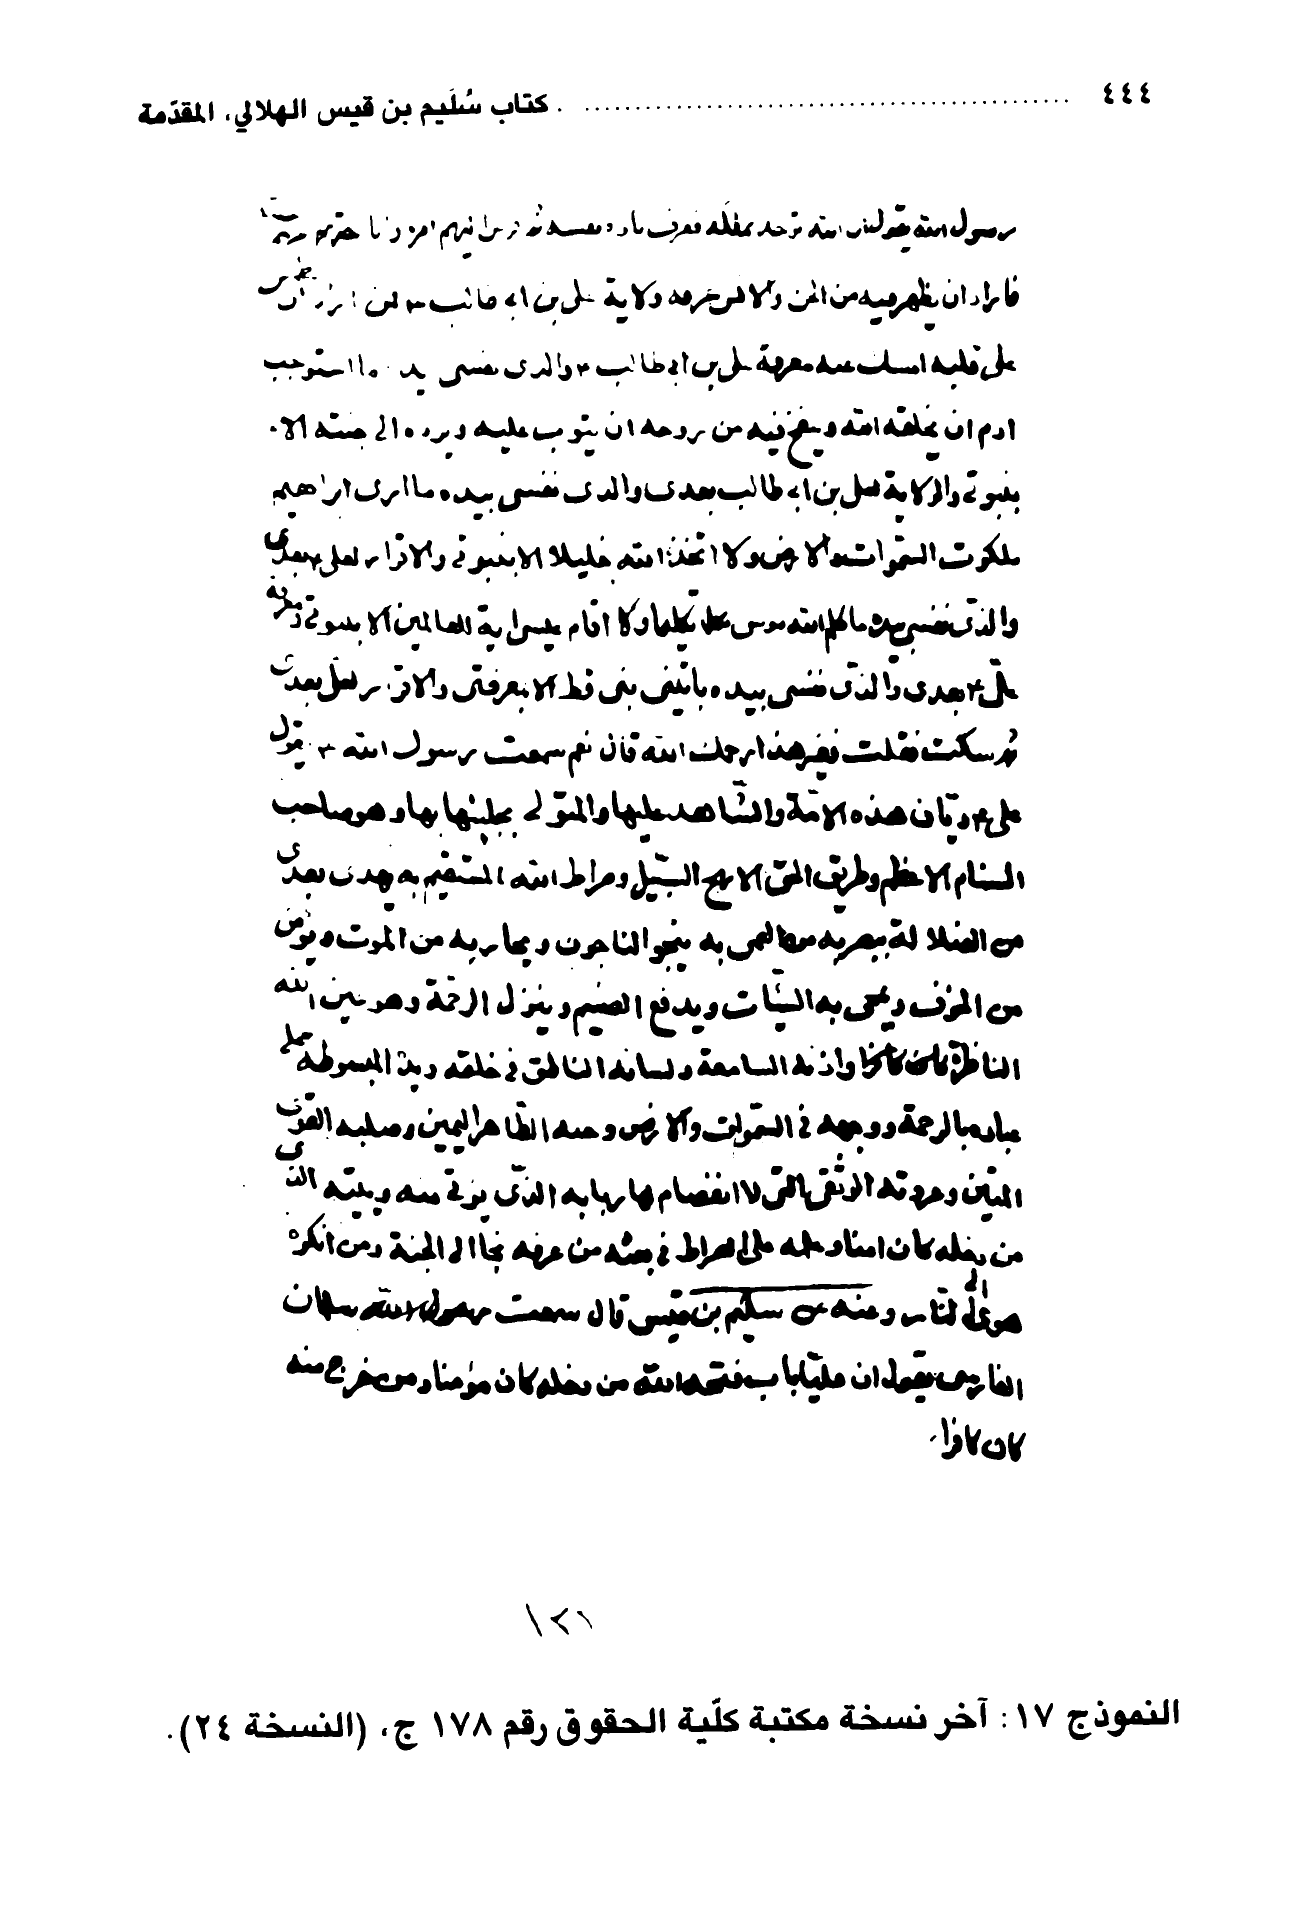 ٤٤٤ ........ كتاب سُلَيم بن قيس الهلالي، المقدّمة
رسول الله يقول ان الله توحد بملكه فعرف
فاراد ان يظهر من الجن والانس عرفه ولاية علي بن ابي طالب
على قلبه امسك عنه معرفة علي بن ابي طالب ٤ والذى نفسى بيده ما استوجب
ادم ان يخلقه الله وينفخ فيه من روحه ان يتوب عليه ويرده الى جنته الا
بنبوتى والولاية لعلى بن ابى طالب بعدى والذى نفسى بيده ما ارى ابراهيم
ملكوت السموات والارض ولا اتخذ الله خليلا الا بنبوتى والاقرار لعلى ٤ بعدى
والذى نفسى بيده ما كلم الله موسى تكليما ولا اقام عيسى اية للعالمين الا بنبوتى ومعرفة
علىّ ٤ بعدى والذى نفسى بيده نبى قط الا بمعرفتى والاقرار لعلى بعدى
ثم سكت فقلت فغير هذا يرحمك الله قال نعم سمعت رسول الله يقول
على ٤ ديان هذه الامّة والشاهد عليها والمتولى لحسابها وهو صاحب
السنام الاعظم وطريق الحق الابهج السبيل وصراط الله المستقيم به يهدى بعدى
من الضلالة يبصر به من العمى به ينجو الناجون ويجار به من الموت ويؤمن
من الخوف ويمحى به السيئات ويدفع الضيم وينزل الرحمة وهو عين الله
الناظرة واذنه السامعة ولسانه الناطق فى خلقه ويده المبسوطة على
عباده بالرحمة ووجهه فى السموات والارض وجنبه الظاهر اليمين وحبله القوى
المتين وعروته الوثقى التى لا انفصام لها وبابه الذى يؤتى منه وبيته الذى
من دخله كان امنا وعلمه على الصراط فى بعثه من عرفه نجا الى الجنة ومن انكره
هوى الى النار وعنه عن سليم بن قيس قال سمعت سلمان
الفارسى يقول ان عليا باب فتحه الله من دخله كان مؤمنا ومن خرج منه
كان كافرا
النموذج ١٧: آخر نسخة مكتبة كلّية الحقوق رقم ١٧٨ ج، (النسخة ٢٤).